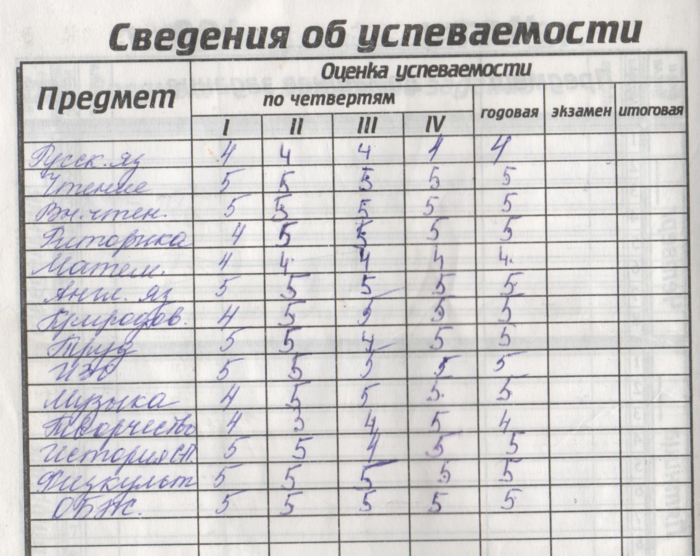 Сведения об успеваемости
Предмет
Оценка успеваемости
по четвертям
годовая экзамен итоговая
I II III IV
Русск. яз 4 4 4 4 4
Чтение 5 5 5 5 5
Вн. чтен. 5 5 5 5 5
Риторика 4 5 5 5 5
Матем. 4 4 4 4 4
Англ. яз 5 5 5 5 5
Природов. 4 5 5 5 5
Труд 5 5 4 5 5
ИЗО 5 5 5 5 5
Музыка 4 5 5 5 5
Творчество 4 5 4 5 4
История 5 5 4 5 5
Физкульт 5 5 5 5 5
ОБЖ. 5 5 5 5 5